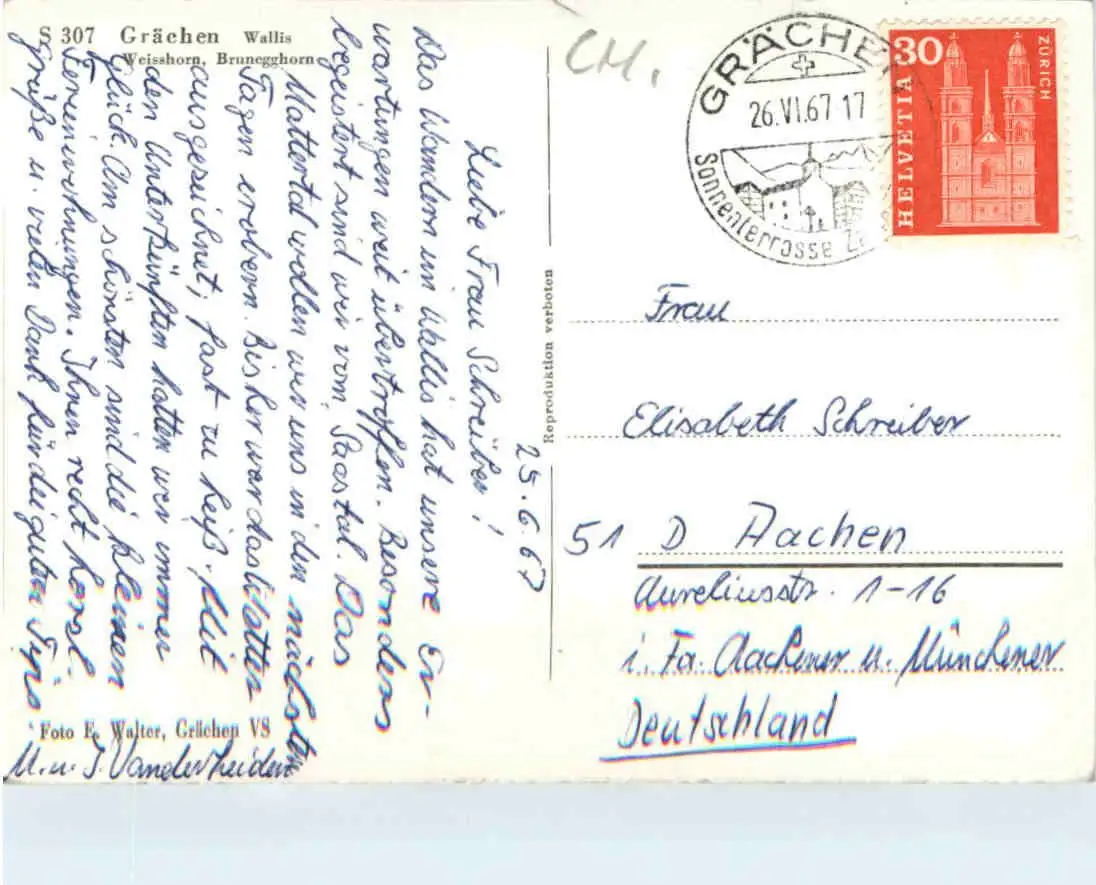 S 307 Grächen Wallis
Weisshorn, Brunegghorn
CH.
GRÄCHEN
26.VI.67 17
Sonnenterrasse
30
HELVETIA
ZÜRICH
25.6.67
Liebe Frau Schreiber!
Das Wandern im Wallis hat unsere Er-
wartungen weit übertroffen. Besonders
begeistert sind wir vom Saastal. Das
Mattertal wollen wir uns in den nächsten
Tagen erobern. Bisher war das Wetter
ausgezeichnet, fast zu heiß. Mit
den Unterkünften hatten wir immer
Glück. Am schönsten sind die kleinen
Ferienwohnungen. Ihnen recht herzl.
Grüße u. vielen Dank für die guten Tips
M. u. J. Vanderheiden
Foto E. Walter, Grächen VS
Reproduktion verboten
Frau
Elisabeth Schreiber
51 D Aachen
Aureliusstr. 1-16
i. Fa. Aachener u. Münchener
Deutschland